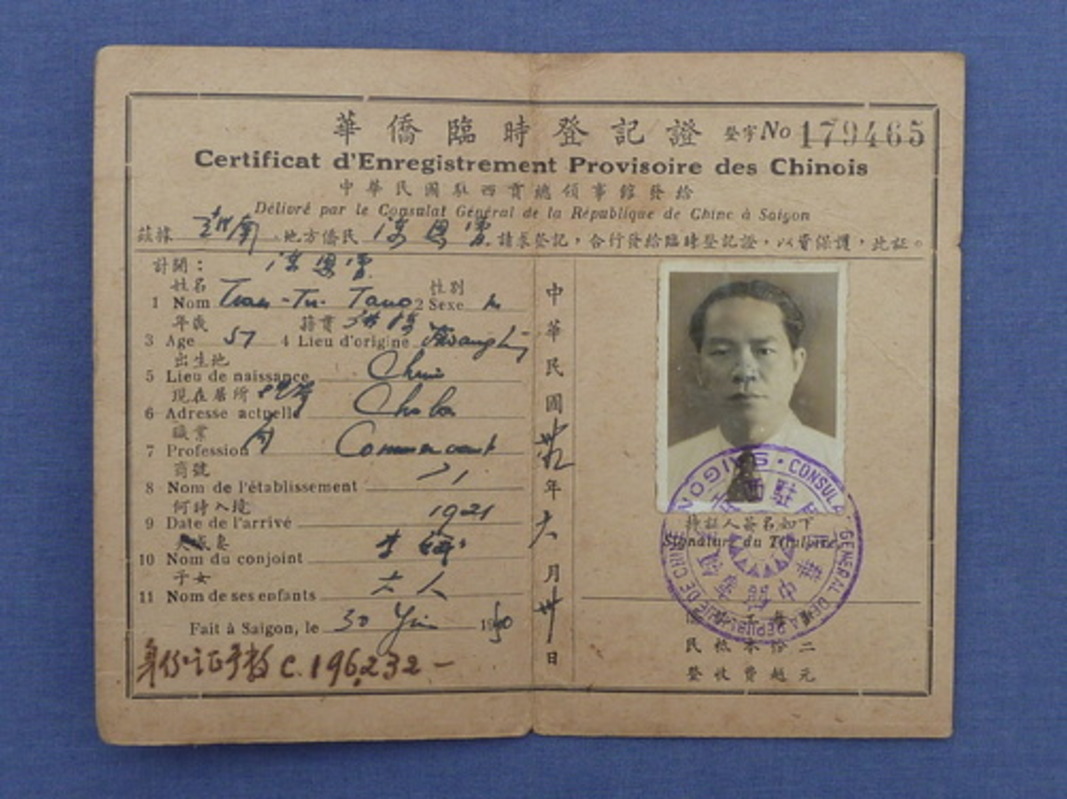 華僑臨時登記證 登字No 179465
Certificat d'Enregistrement Provisoire des Chinois
中華民國駐西貢總領事館發給
Délivré par le Consulat Général de la République de Chine à Saigon
茲據 越南 地方僑民 請求登記，合行發給臨時登記證，以資保護，此証。
計開：
姓名 性別
1 Nom Tran-Tu- Tang 2 Sexe M
年歲 籍貫
3 Age 57 4 Lieu d'origine
出生地
5 Lieu de naissance Chine
現在居所
6 Adresse actuelle Cholon
職業
7 Profession Commercant
商號
8 Nom de l'établissement
何時入境
9 Date de l'arrivé 1921
夫或妻
10 Nom du conjoint 李
子女
11 Nom de ses enfants 六人
Fait à Saigon, le 30 Juin 1950
身份证字板 C.196232-
中華民國卅九年六月卅日
持証人簽名如下
Signature du Titulaire
CONSULAT GENERAL DE LA REPUBLIQUE DE CHINE SAIGON
民 紙 本 份 二
登 收 費 越 元